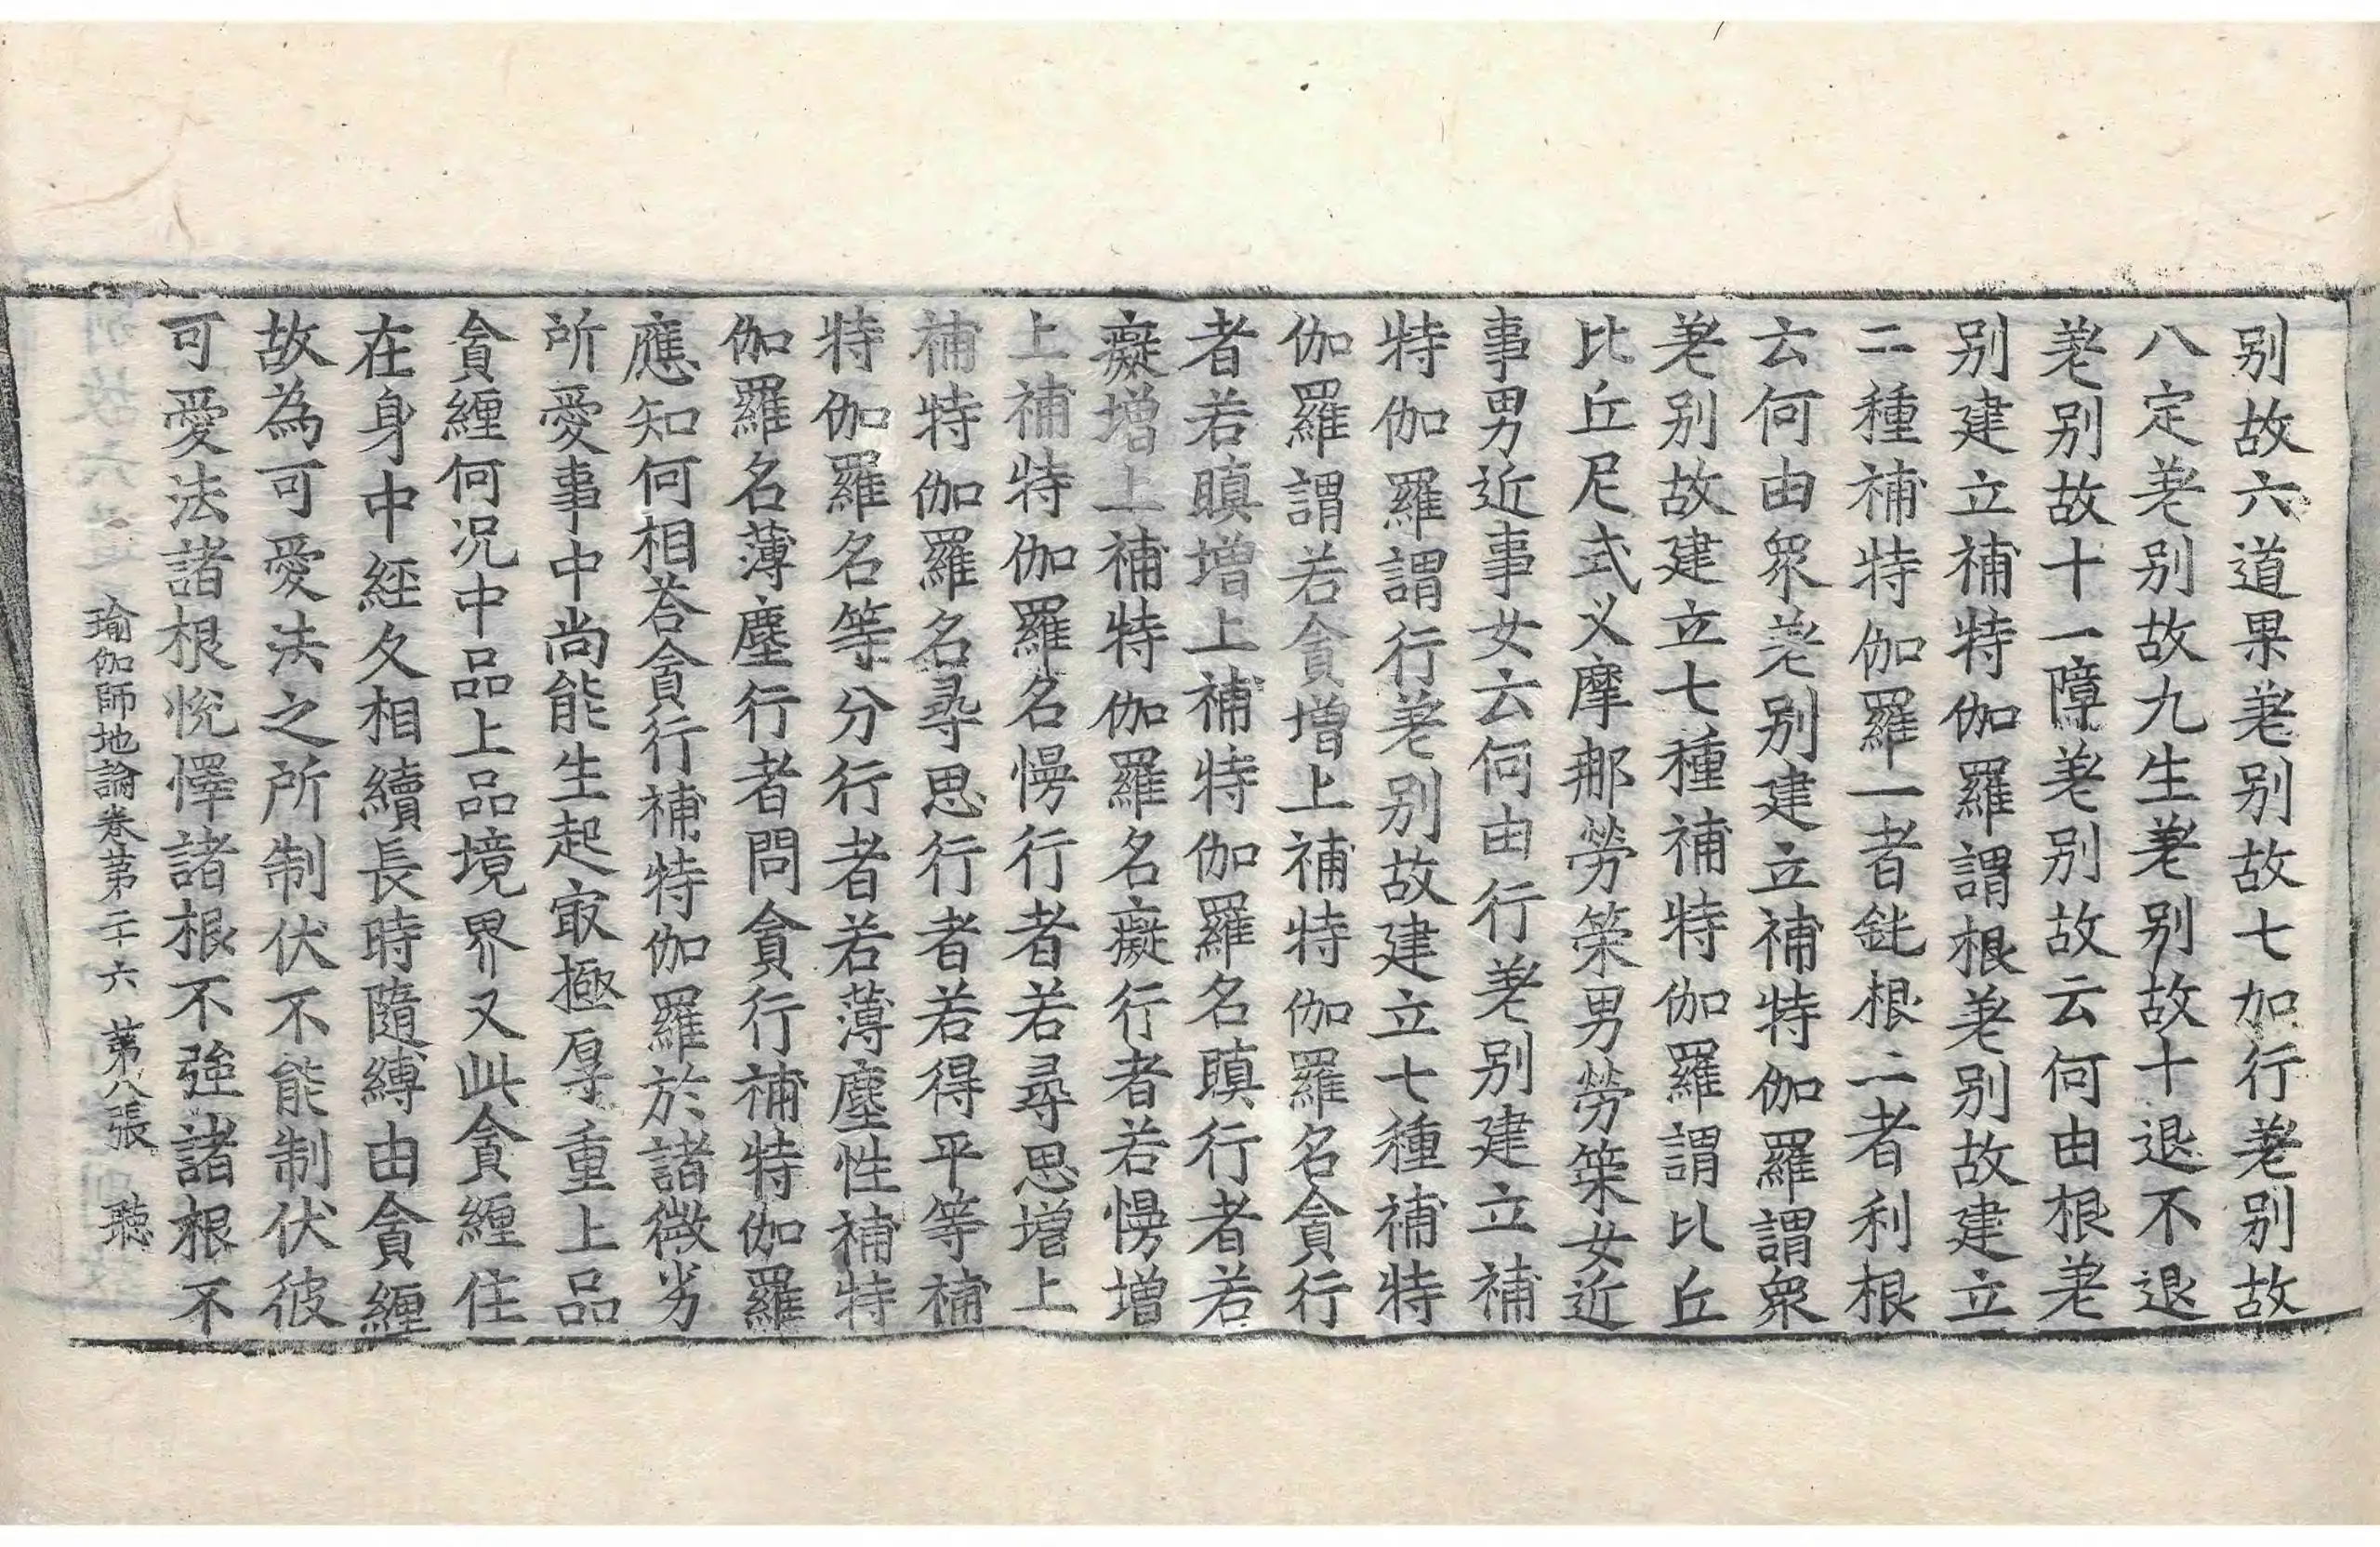 别故六道果差别故七加行差别故
八定差别故九生差别故十退不退
差别故十一障差别故云何由根差
别建立補特伽羅謂根差别故建立
二種補特伽羅一者鈍根二者利根
云何由衆差别建立補特伽羅謂衆
差别故建立七種補特伽羅謂比丘
比丘尼式叉摩那勞策男勞策女近
事男近事女云何由行差别建立補
特伽羅謂行差别故建立七種補特
伽羅謂若貪增上補特伽羅名貪行
者若瞋增上補特伽羅名瞋行者若
癡增上補特伽羅名癡行者若慢增
上補特伽羅名慢行者若尋思增上
補特伽羅名尋思行者若得平等補
特伽羅名等分行者若薄塵性補特
伽羅名薄塵行者問貪行補特伽羅
應知何相荅貪行補特伽羅於諸微劣
所愛事中尚能生起㝡極厚重上品
貪纏何況中品上品境界又此貪纏住
在身中經久相續長時隨縛由貪纏
故為可愛法之所制伏不能制伏彼
可愛法諸根悅懌諸根不強諸根不
瑜伽師地論卷第二十六 第八張 聽